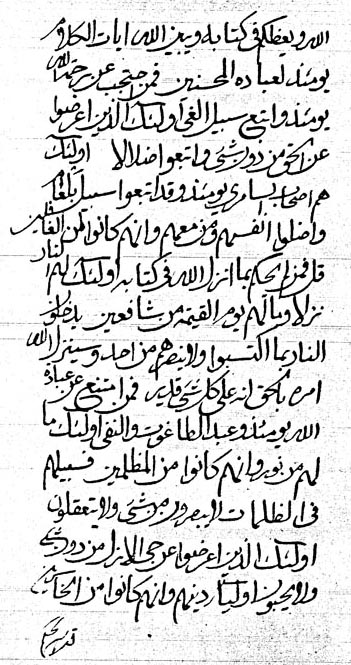 الله ويعظكم فى كتابه ويبين الله ايات الكلام
يومئذ لعباده المحسنين فمن احتجب عن رحمة الله
يومئذ واتبع سبيل الغى اولئك الذين اعرضوا
عن الحق من دون شئ واتبعوا ضلالا اولئك
هم اصحاب السامرى يومئذ وقد اتبعوا سبيل بلغام
واضلوا انفسهم ومن معهم وانهم كانوا لمن الغافلين
قل فمن لم يحكم بما انزل الله فى كتابه اولئك لهم النار
نزلا ومالهم يوم القيمة من شافعين يدخلون
النار بما اكتسبوا ولا ينصرهم من احد وسينزل الله
امره بالحق انه على كل شئ قدير فمن امتنع عن عبادة
الله يومئذ وعبد الطاغوت والنفى اولئك ما
لهم من نور وانهم كانوا من المظلمين فسبيلهم
فى الظلمات لا يبصرون من شئ ولا يتعقلون
اولئك الذين اعرضوا عن حجى الانزل من دون شئ
ولا يحبون اولياء دينهم وانهم كانوا من